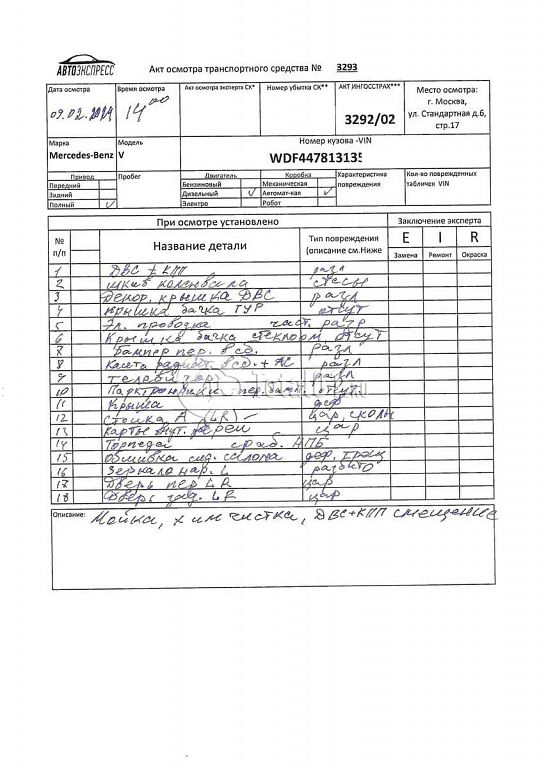 АВТОЭКСПРЕСС
Акт осмотра транспортного средства № 3293
Дата осмотра Время осмотра Акт осмотра эксперта СК* Номер убытка СК** АКТ ИНГОССТРАХ*** Место осмотра:
09.02.2024 14 00 3292/02 г. Москва, ул. Стандартная д.6, стр.17
Марка Модель Номер кузова -VIN
Mercedes-Benz V WDF44781313
Привод Пробег Двигатель Коробка Характеристика повреждения Кол-во поврежденных табличек VIN
Передний Бензиновый Механическая
Задний Дизельный ✓ Автомат-кая ✓
Полный ✓ Электро Робот
При осмотре установлено Заключение эксперта
№ п/п Название детали Тип повреждения (описание см.Ниже E I R
Замена Ремонт Окраска
1 ДВС + КПП разл
2 шкив коленвала
3 Декор. крышка ДВС разл
4 крышка бачка ГУР отсут
5 Эл. проводка част. разр
6 Крышка бачка отсут
8 Бампер пер. в сб. разл
8 Касета радиат. в сб. + АС разл
9 телевизор разл
10 пер. бамп. отсут.
11 Крыша деф
12 Стойка А (LR) - цар, сколы
13 Карты внут. двери цар
14 Торпеда сраб. НПБ
15 Обшивка сид. салона деф, грязь
16 Зеркало нар. L разбито
17 Дверь пер LR цар
18 Дверь зад. LR цар
Описание: Мойка, химчистка, ДВС+КПП смещение